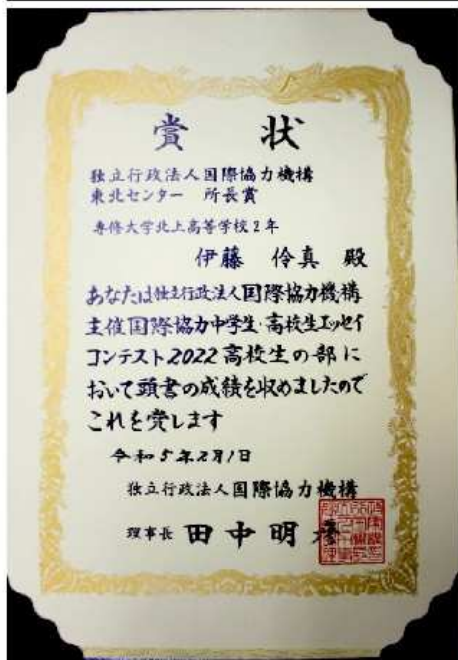 賞 状
独立行政法人国際協力機構
東北センター 所長賞
専修大学北上高等学校2年
伊藤 伶真 殿
あなたは独立行政法人国際協力機構
主催国際協力中学生・高校生エッセイ
コンテスト2022高校生の部に
おいて頭書の成績を収めましたので
これを賞します
令和5年2月1日
独立行政法人国際協力機構
理事長 田中明彦